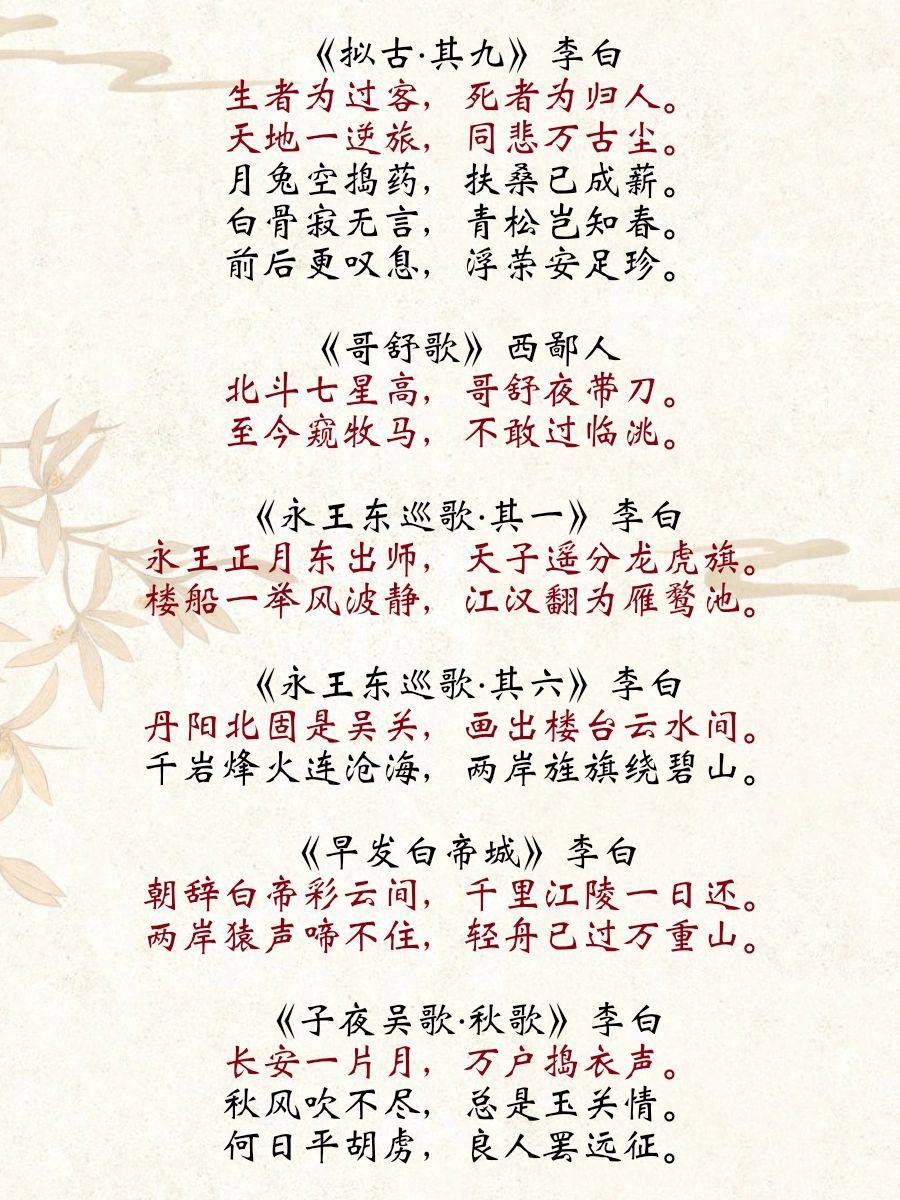 《拟古·其九》李白
生者为过客，死者为归人。
天地一逆旅，同悲万古尘。
月兔空捣药，扶桑已成薪。
白骨寂无言，青松岂知春。
前后更叹息，浮荣安足珍。
《哥舒歌》西鄙人
北斗七星高，哥舒夜带刀。
至今窥牧马，不敢过临洮。
《永王东巡歌·其一》李白
永王正月东出师，天子遥分龙虎旗。
楼船一举风波静，江汉翻为雁鹜池。
《永王东巡歌·其六》李白
丹阳北固是吴关，画出楼台云水间。
千岩烽火连沧海，两岸旌旗绕碧山。
《早发白帝城》李白
朝辞白帝彩云间，千里江陵一日还。
两岸猿声啼不住，轻舟已过万重山。
《子夜吴歌·秋歌》李白
长安一片月，万户捣衣声。
秋风吹不尽，总是玉关情。
何日平胡虏，良人罢远征。